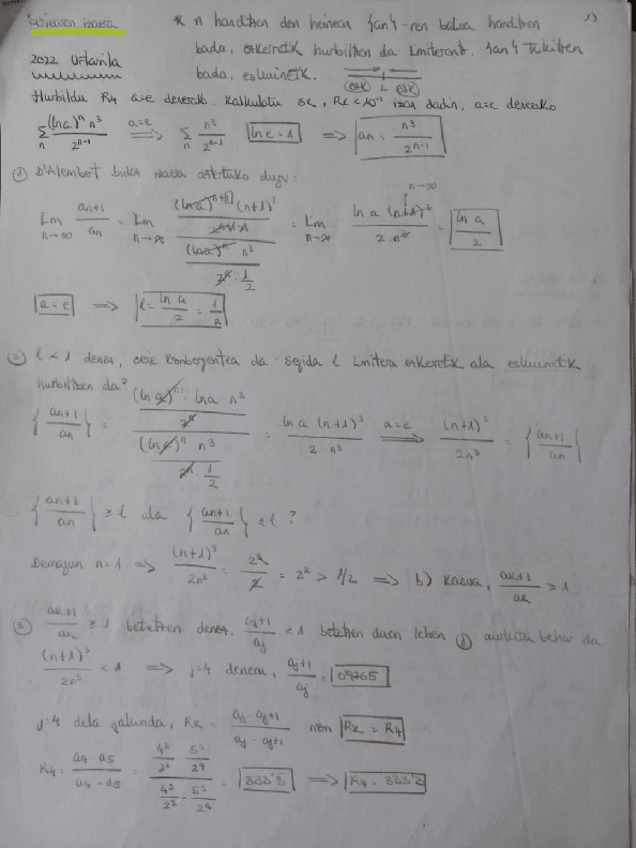 Seriearen izaera
* n handitzen den heinean {an}-ren balioa handitzen 1)
bada, ezkerretik hurbiltzen da limiterantz. {an} txikitzen
2022 Uztaila
bada, eskuinetik.
Hurbildu R4 a=e denerako. Kalkulatu se, Rk < 10⁻¹ izan dadin, a=e denerako
∑n (ln a)ⁿ n³ / 2ⁿ⁻¹ a=e ⟹ ∑n n³ / 2ⁿ⁻¹ ln e = 1 ⟹ an = n³ / 2ⁿ⁻¹
① D'Alembert bidez izaera aztertuko dugu:
Lim n→∞ an+1 / an = Lim n→∞ = Lim n→∞ ln a (n+1)³ / 2 n³ = ln a / 2
a=e ⟹ l = ln a / 2 = 1/2
② l < 1 denez, serie konbergentea da. Segida l limitera ezkerretik ala eskuinetik
hurbiltzen da?
{an+1 / an} = (ln a)ⁿ · ln a · n³ / 2ⁿ / (ln a)ⁿ n³ / 2ⁿ · 1/2 = ln a (n+1)³ / 2 n³ a=e ⟹ (n+1)³ / 2n³ = {an+1 / an}
{an+1 / an} ≥ l ala {an+1 / an} ≤ l ?
Demagun n=1 ⟹ (n+1)³ / 2n³ = 2³ / 2 = 2² > 1/2 ⟹ b) kasua, ak+1 / ak > 1
③ ak+1 / ak ≥ 1 betetzen denez, aj+1 / aj < 1 betetzen duen lehen j aurkitu behar da
(n+1)³ / 2n³ < 1 ⟹ j=4 denean, aj+1 / aj = 0'9765
j=4 dela jakinda, Rk = aj · aj+1 / aj - aj+1 non Rk = R4
R4 = a4 · a5 / a4 - a5 = 4³/2³ · 5³/2⁴ / 4³/2³ - 5³/2⁴ = 333'3 ⟹ R4 = 333'3